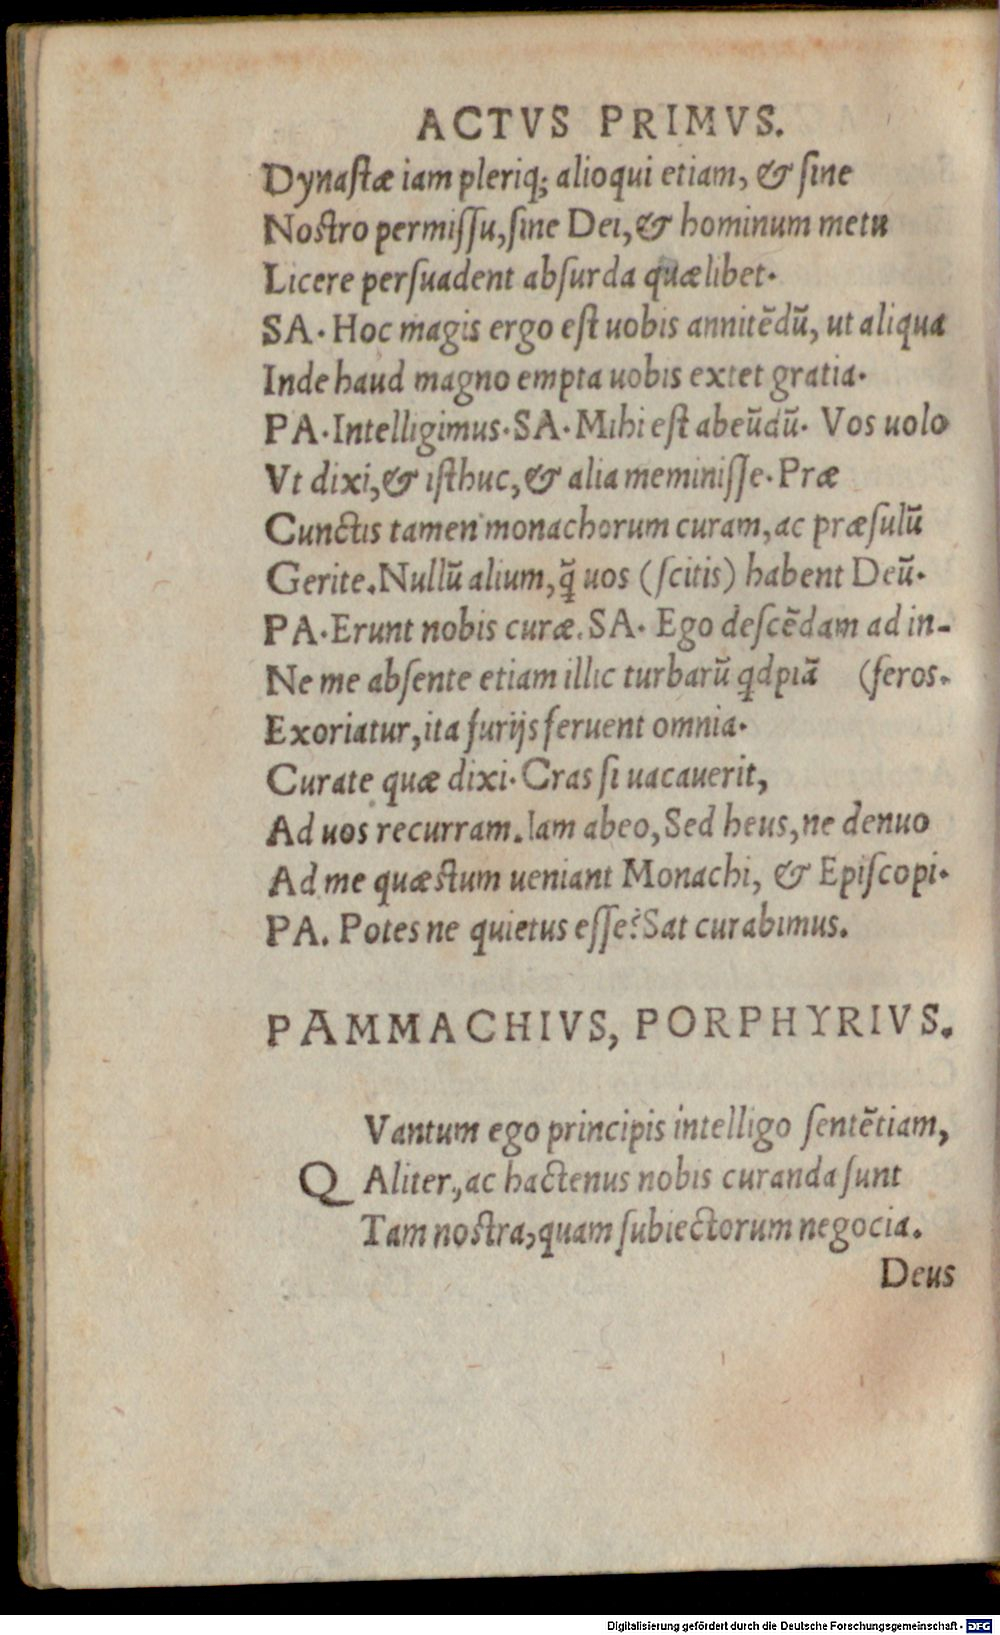 ACTVS PRIMVS.
Dynastæ iam pleriq; alioqui etiam, & sine
Nostro permissu, sine Dei, & hominum metu
Licere persuadent absurda quælibet.
SA. Hoc magis ergo est uobis annitēdū, ut aliqua
Inde haud magno empta uobis extet gratia.
PA. Intelligimus. SA. Mihi est abeūdū. Vos uolo
Vt dixi, & isthuc, & alia meminisse. Præ
Cunctis tamen monachorum curam, ac præsulū
Gerite. Nullū alium, q̄ uos (scitis) habent Deū.
PA. Erunt nobis curæ. SA. Ego descēdam ad in-
Ne me absente etiam illic turbarū qdpiā (feros.
Exoriatur, ita furijs feruent omnia.
Curate quæ dixi. Cras si uacauerit,
Ad uos recurram. Iam abeo, Sed heus, ne denuo
Ad me quæstum ueniant Monachi, & Episcopi.
PA. Potes ne quietus esse? Sat curabimus.
PAMMACHIVS, PORPHYRIVS.
QVantum ego principis intelligo sentētiam,
Aliter, ac hactenus nobis curanda sunt
Tam nostra, quam subiectorum negocia.
Deus
Digitalisierung gefördert durch die Deutsche Forschungsgemeinschaft - DFG